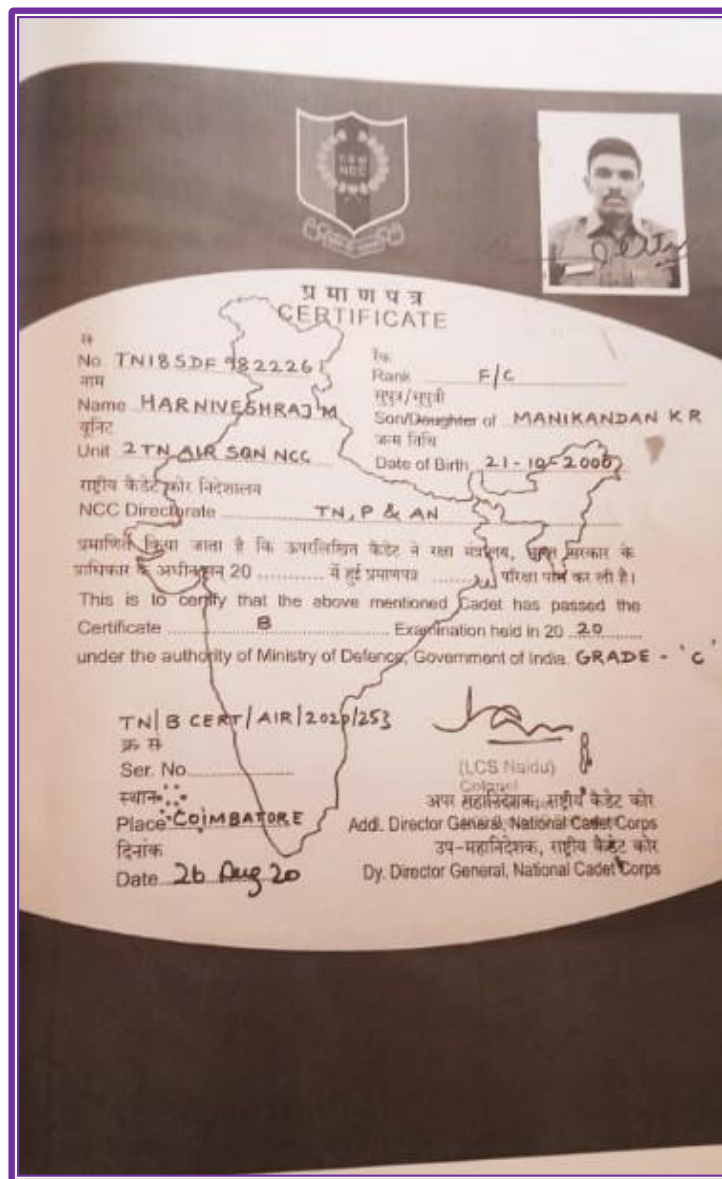 NCC
प्रमाणपत्र
CERTIFICATE
सं
No. TN18SDF982226
रैंक
Rank F/C
नाम
Name HARNIVESHRAJ M
सुपुत्र/सुपुत्री
Son/Daughter of MANIKANDAN K R
यूनिट
Unit 2 TN AIR SQN NCC
जन्म तिथि
Date of Birth 21-10-2000
राष्ट्रीय कैडेट कोर निदेशालय
NCC Directorate TN, P & AN
प्रमाणित किया जाता है कि ऊपरलिखित कैडेट ने रक्षा मंत्रालय, भारत सरकार के
प्राधिकार के अधीन सन् 20 ............ में हुई प्रमाणपत्र ............ परिक्षा पास कर ली है।
This is to certify that the above mentioned Cadet has passed the
Certificate B Examination held in 20 20
under the authority of Ministry of Defence, Government of India. GRADE - 'C'
TN/B CERT/AIR/2020/253
क्र सं
Ser. No.
(LCS Naidu)
Colonel
स्थान
Place COIMBATORE
अपर महानिदेशक, राष्ट्रीय कैडेट कोर
Addl. Director General, National Cadet Corps
दिनांक
Date 26 Aug 20
उप-महानिदेशक, राष्ट्रीय कैडेट कोर
Dy. Director General, National Cadet Corps